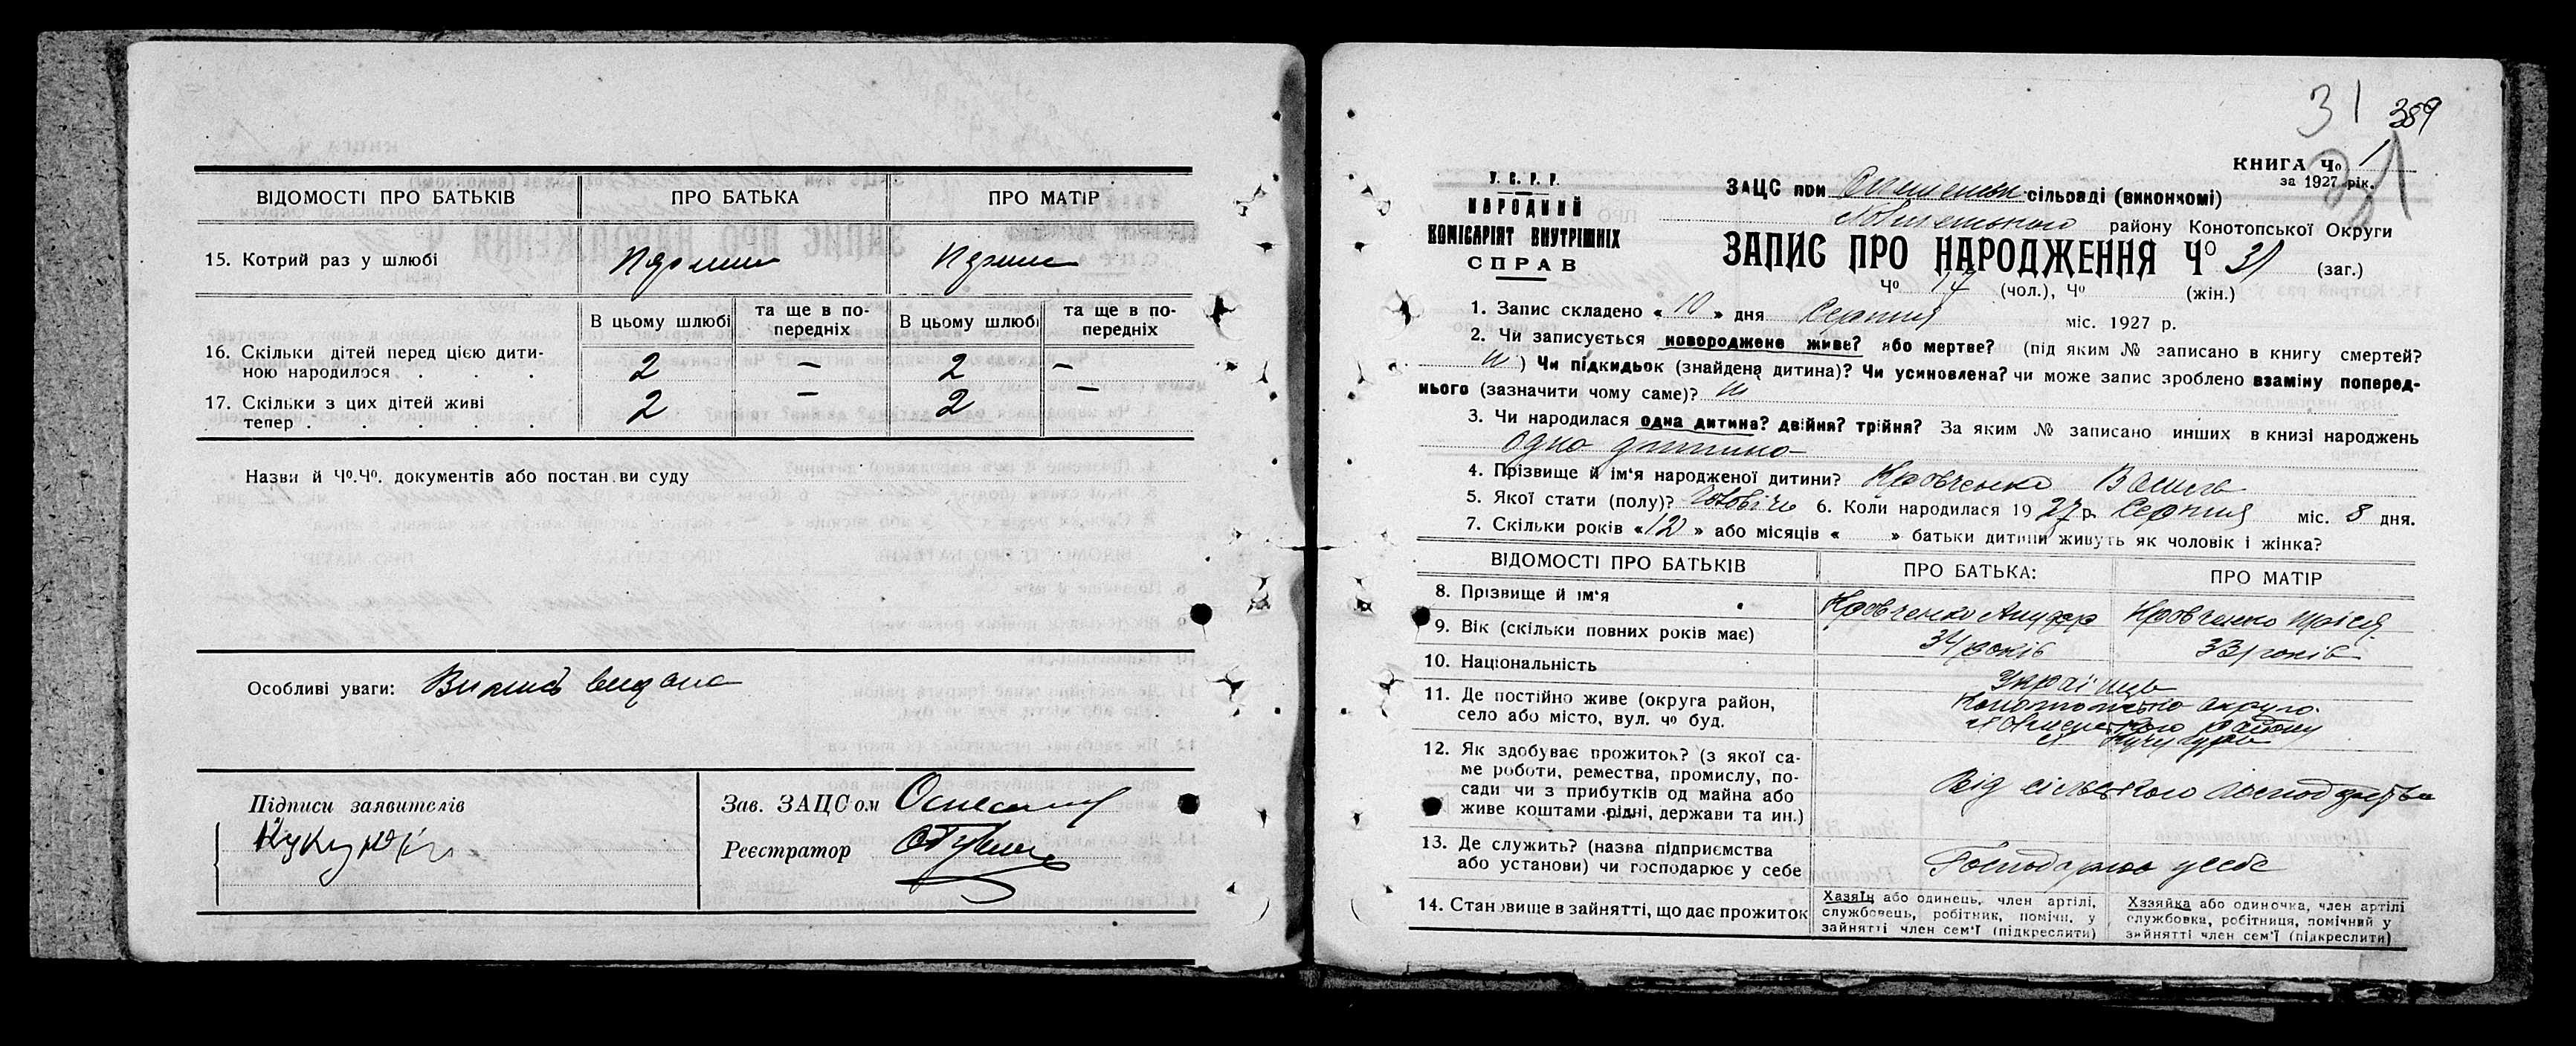 ВІДОМОСТІ ПРО БАТЬКІВ ПРО БАТЬКА ПРО МАТІР
15. Котрий раз у шлюбі
В цьому шлюбі та ще в по-передніх В цьому шлюбі та ще в по-передніх
16. Скільки дітей перед цією дити-
ною народилося . . . 2 – 2 –
17. Скільки з цих дітей живі
тепер . . . . . 2 – 2 –
Назви й Чо.Чо. документів або постанови суду
Особливі уваги: Випись видана
Підписи заявителів
Зав. ЗАЦС'ом
Реєстратор
31 389
КНИГА Чо 1
за 1927 рік.
31
У. С. Р. Р.
НАРОДНИЙ
КОМІСАРІЯТ ВНУТРІШНІХ
СПРАВ
ЗАЦС при сільраді (виконкомі)
району Конотопської Округи
ЗАПИС ПРО НАРОДЖЕННЯ Чо 31 (заг.)
Чо 17 (чол.), Чо (жін.)
1. Запис складено « 10 » дня Серпня міс. 1927 р.
2. Чи записується новороджене живе? або мертве? (під яким № записано в книгу смертей?
ні ) Чи підкидьок (знайдена дитина)? Чи усиновлена? чи може запис зроблено взаміну поперед-
нього (зазначити чому саме)? ні
3. Чи народилася одна дитина? двійня? трійня? За яким № записано инших в книзі народжень
одна дитина
4. Прізвище й ім'я народженої дитини? Кравченко Василь
5. Якої стати (полу)? Чоловічо 6. Коли народилася 1927 р. Серпня міс. 8 дня.
7. Скільки років « 12 » або місяців « » батьки дитини живуть як чоловік і жінка?
ВІДОМОСТІ ПРО БАТЬКІВ ПРО БАТЬКА: ПРО МАТІР
8. Прізвище й ім'я . Кравченко Кравченко
9. Вік (скільки повних років має) 34 років 33 років
10. Національність Українці
11. Де постійно живе (округа район,
село або місто, вул. чо буд. Конотопська округа
району
12. Як здобуває прожиток? (з якої са-
ме роботи, ремества, промислу, по-
сади чи з прибутків од майна або
живе коштами рідні, держави та ин.) Від сільського господарства
13. Де служить? (назва підприємства
або установи) чи господарює у себе Господарює у себе
14. Становище в зайнятті, що дає прожиток
Хазяїн або одинець, член артілі,
службовець, робітник, помічн. у
зайнятті член сем'ї (підкреслити)
Хазяйка або одиночка, член артілі
службовка, робітниця, помічний у
зайнятті член сем'ї (підкреслити)